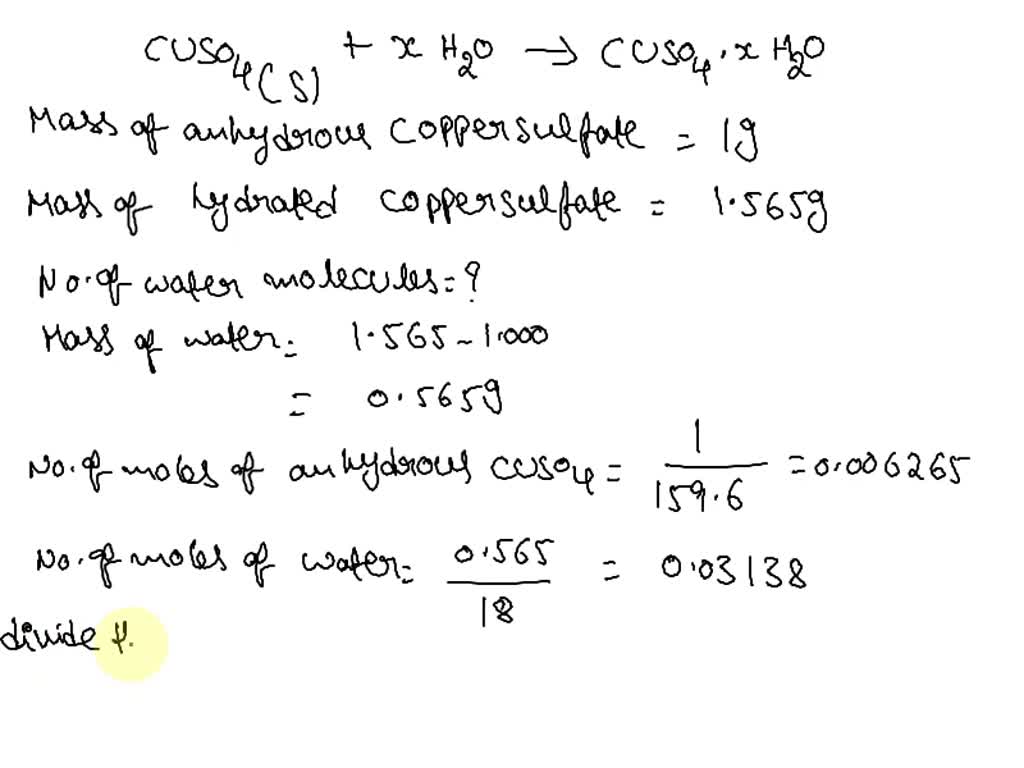 CUSO4(S) + x H2O → CUSO4·x H2O
Mass of anhydrous coppersulfate = 1g
Mass of hydrated coppersulfate = 1.565g
No. of water molecules = ?
Mass of water = 1.565 - 1.000
= 0.565g
No. of moles of anhydrous CUSO4 = 1/159.6 = 0.006265
No. of moles of water = 0.565/18 = 0.03138
divide